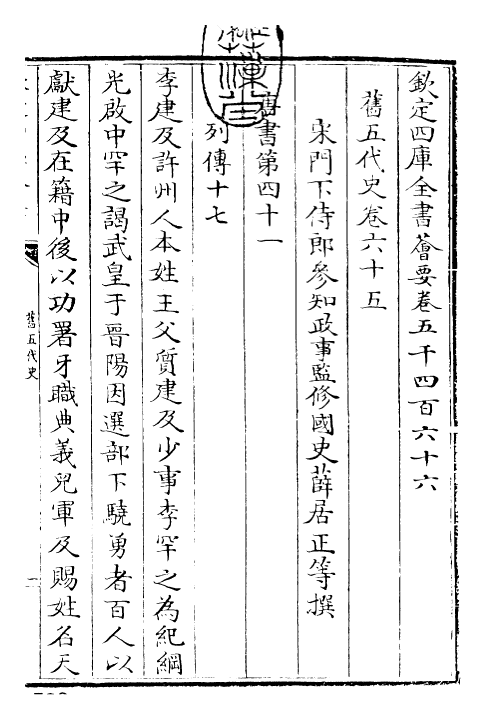 欽定四庫全書薈要卷五千四百六十六
舊五代史卷六十五
宋門下侍郎參知政事監修國史薛居正等撰
唐書第四十一
列傳十七
李建及許州人本姓王父質建及少事李罕之為紀綱
光啟中罕之謁武皇于晉陽因選部下驍勇者百人以
獻建及在籍中後以功署牙職典義兒軍及賜姓名天
舊五代史